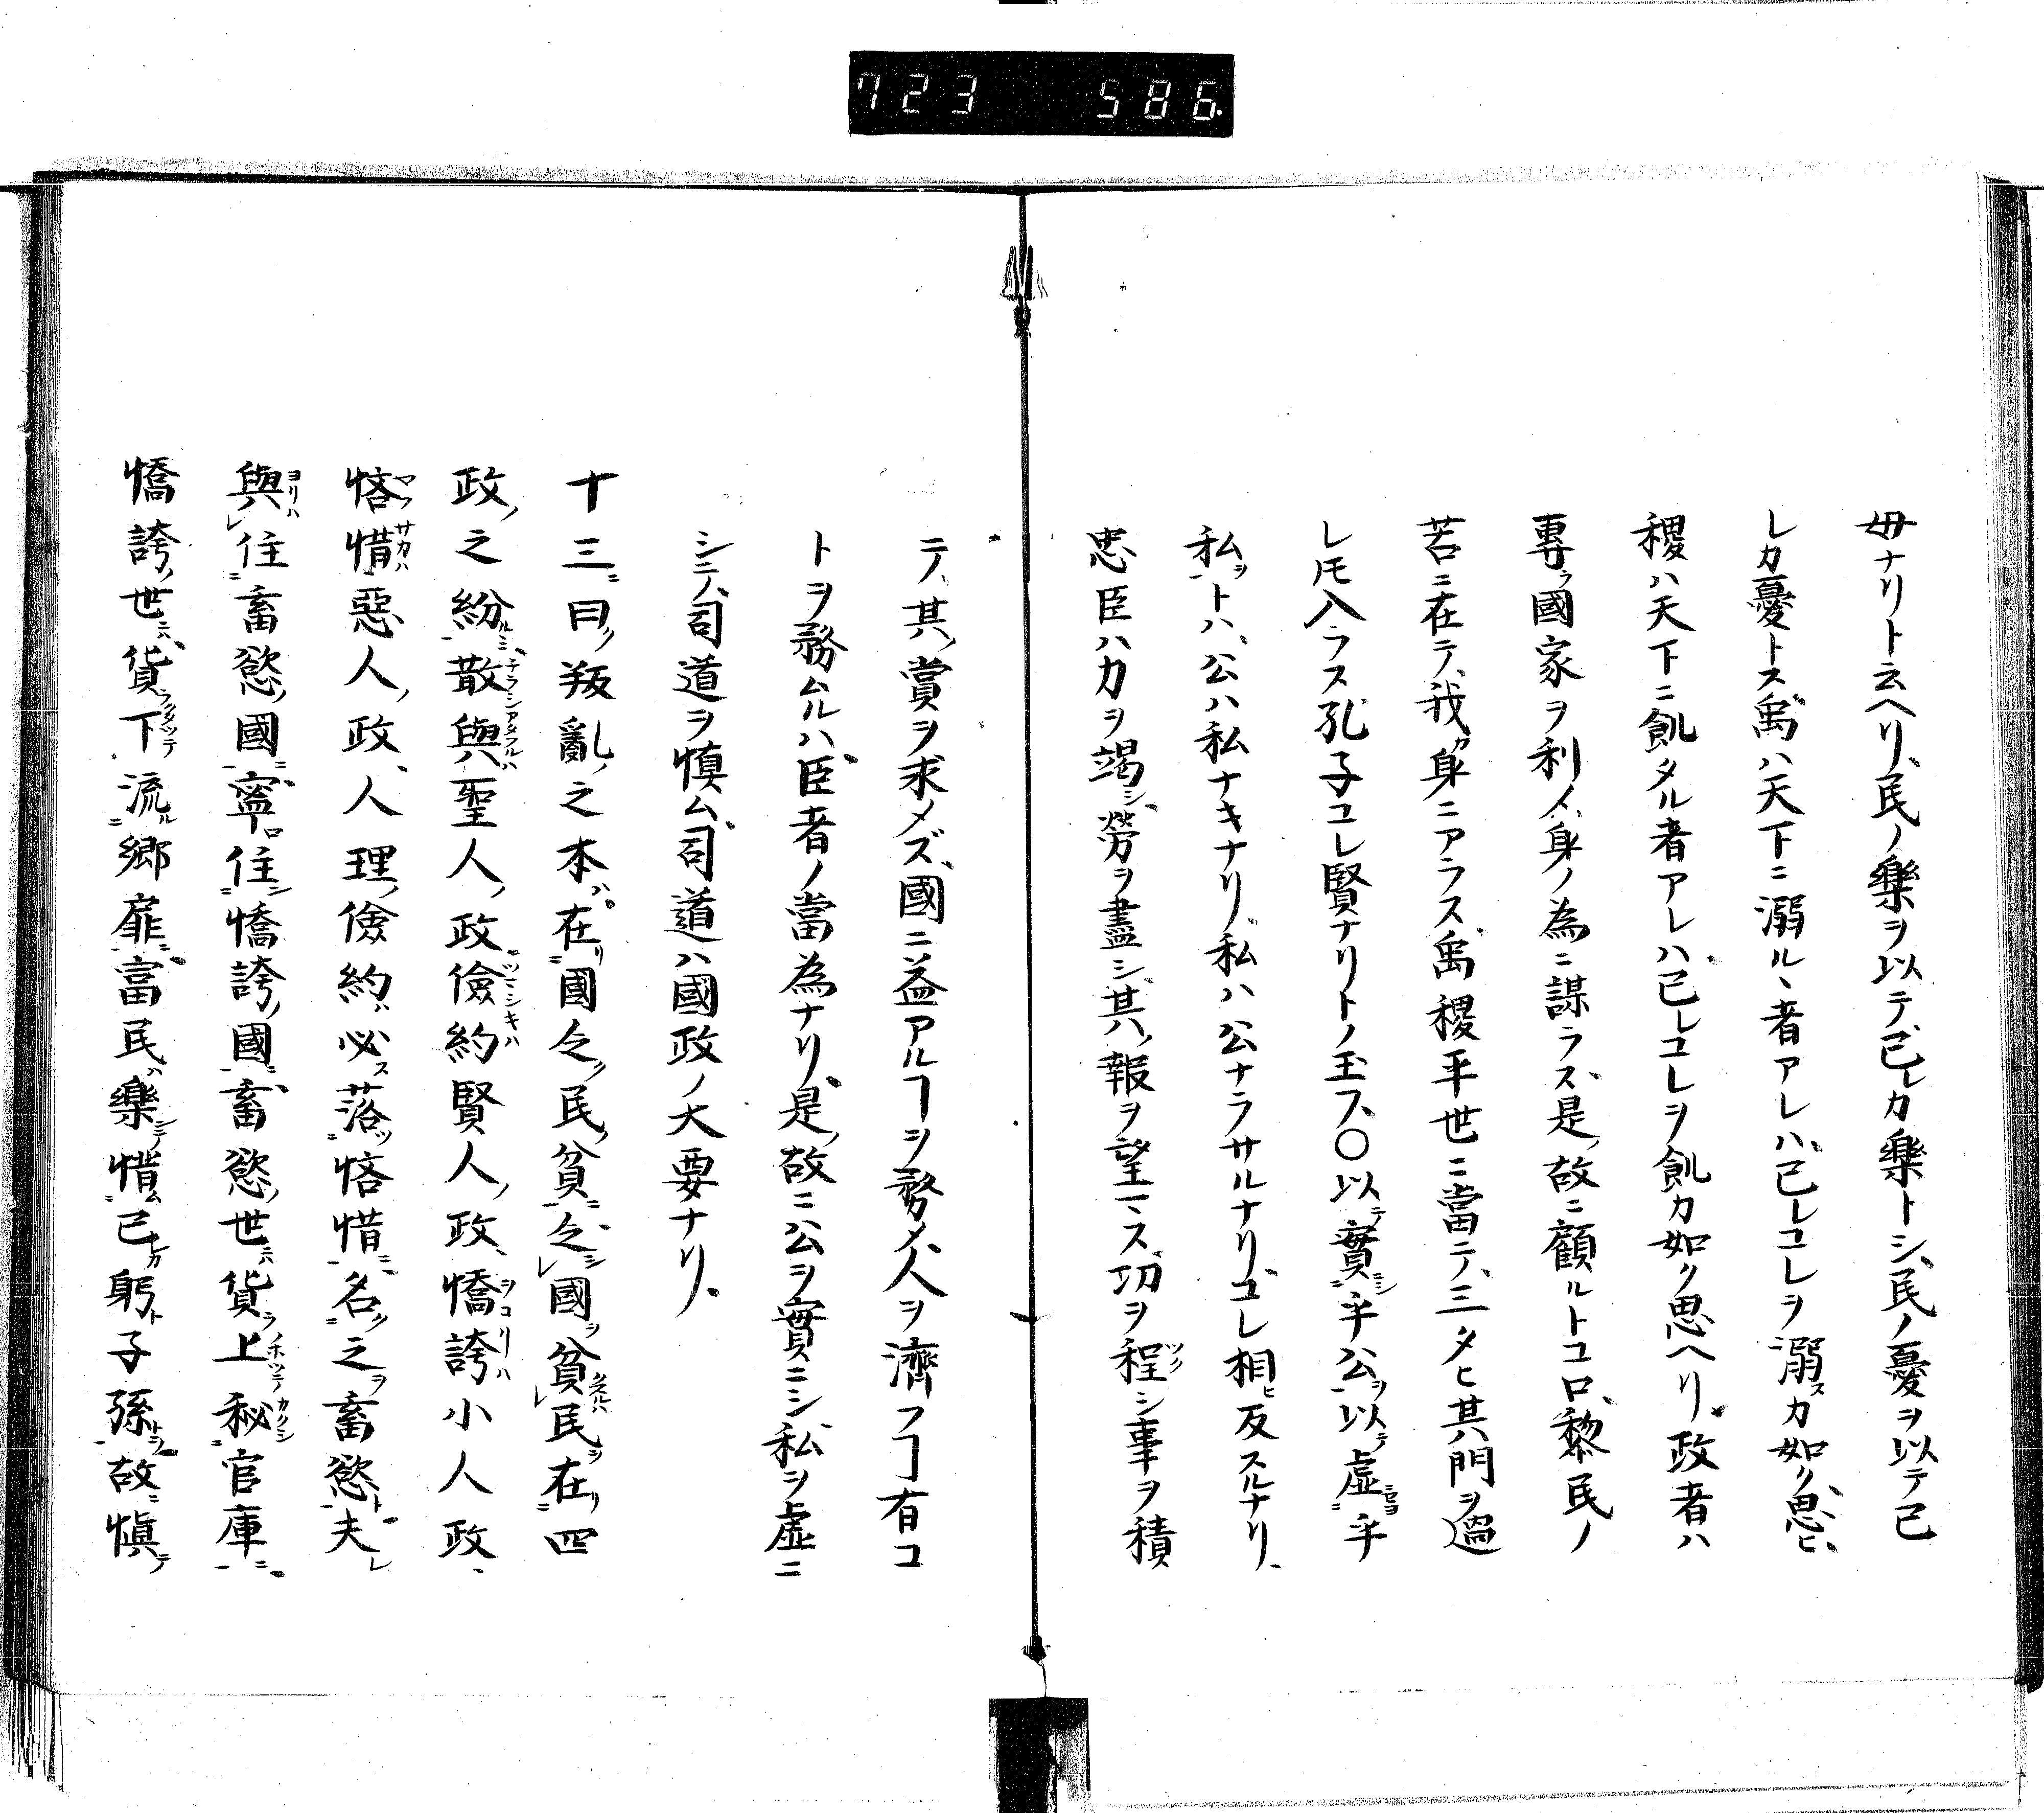 723 586.
毋ナリト云ヘリ、民ノ樂ヲ以テ、已レカ樂トシ、民ノ憂ヲ以テ已
レカ憂トス、禹ハ天下ニ溺ルヽ者アレハ、已レコレヲ溺スカ如ク思ヒ、
稷ハ天下ニ飢タル者アレハ、已レコレヲ飢カ如ク思ヘリ、政者ハ
專ラ國家ヲ利メ、身ノ為ニ謀ラス、是ノ故ニ顧ルトコロ、黎民ノ
苦ニ在テ、我カ身ニアラス、禹稷平世ニ當テ、三タヒ其門ヲ過
レ𪜈入ラス、孔子コレ賢ナリトノ玉フ、〇以テ實ニシ乎公ヲ以テ虚ニセヨ乎
私ヲトハ、公ハ私ナキナリ、私ハ公ナラサルナリ、コレ相ヒ反スルナリ、
忠臣ハカヲ竭シ、勞ヲ盡シ、其ノ報ヲ望マス、功ヲ程シ事ヲ積
テ、其ノ賞ヲ求メズ、國ニ益アルヿヲ務メ、人ヲ濟フヿ有コ
トヲ務ムルハ、臣者ノ當為ナリ、是ノ故ニ公ヲ實ニシ私ヲ虚ニ
シテ、司道ヲ慎ム、司道ハ國政ノ大要ナリ、
十三ニ曰ク叛亂ノ之本ハ在リ國令ノ民ノ貧ニ令シ國ヲ貧クスルハ民ヲ在リ四
政ノ之紛ルニ散チラシ與アタフルハ聖人ノ政儉ツヽシキハ約賢人ノ政憍ヲコリ誇ハ小人政
悋惜惡人ノ政人理ノ儉約ハ必ス落ツ悋惜ニ名ク之ヲ畜慾ト夫レ
與ヨリハ住畜慾ノ國ニ寧ロ住シ憍誇ノ國ニ畜慾ノ世ハ貨ラ上ホツテ秘カクシ官庫ニ
憍誇ノ世ハ貨ラ下クタツテ流ル郷扉ニ富民ハ樂シテ惜ム已レカ躬ト子孫トラ故ニ愼テ